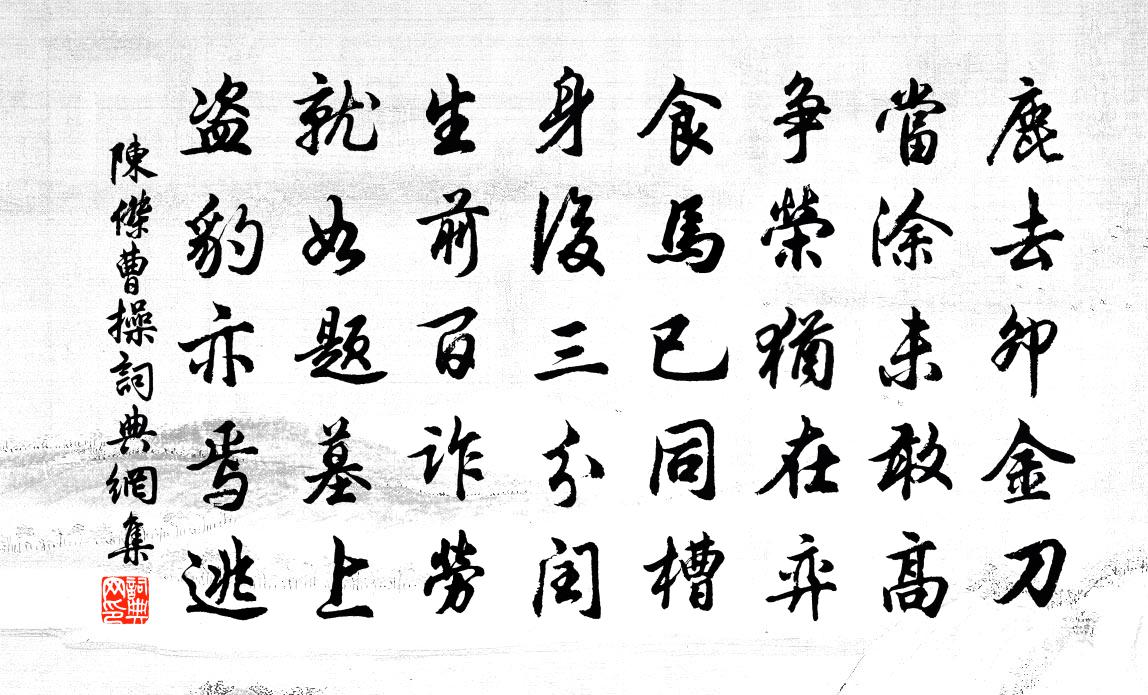 鹿去卯金刀
當涂未敢高
爭榮猶在弈
食馬已同槽
身後三分閏
生前百詐勞
就如題墓上
盜豹亦焉逃
陳傑曹操詞典網集
詞典网印